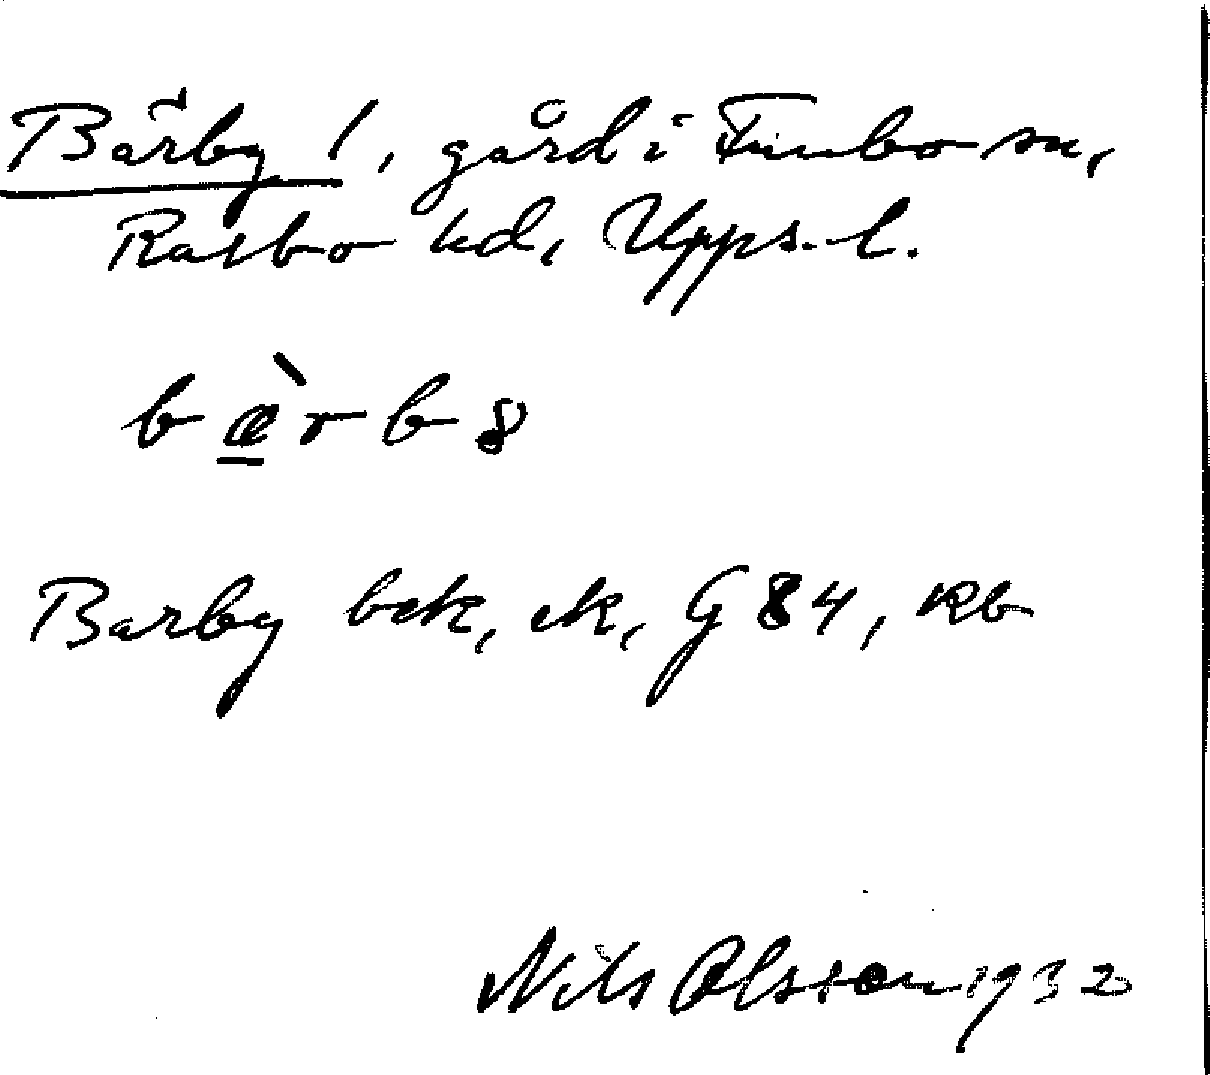 Bärby 1, gård i Funbo sn,
Rasbo hd, Upps. l.
bæ̀rb8
Bärby bek, ek, G 84, Rb
Nils Olsson 1932